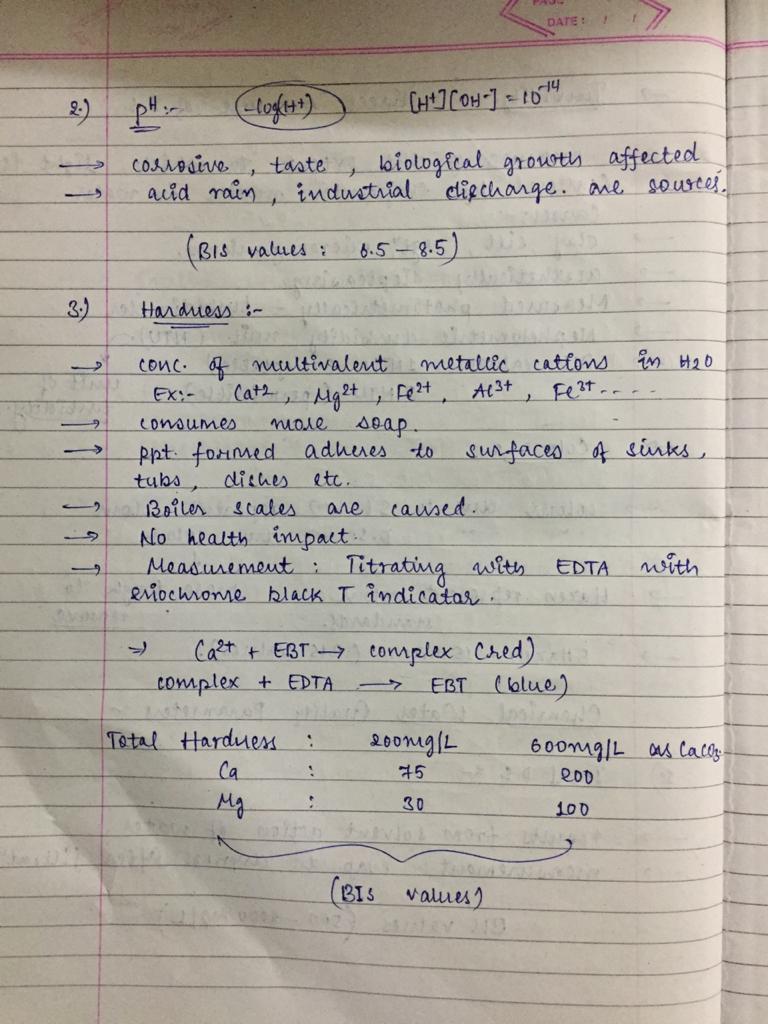 DATE: / /
2.) pH :- -log(H+) [H+][OH-] = 10-14
→ corrosive, taste, biological growth affected
→ acid rain, industrial discharge. are sources.
(BIS values : 6.5 – 8.5)
3.) Hardness :-
→ conc. of multivalent metallic cations in H2O
Ex:- Ca+2, Mg2+, Fe2+, Al3+, Fe3+.....
→ consumes more soap.
→ ppt. formed adheres to surfaces of sinks,
tubs, dishes etc.
→ Boiler scales are caused.
→ No health impact.
→ Measurement : Titrating with EDTA with
eriochrome black T indicator.
⇒ Ca2+ + EBT → complex (red)
complex + EDTA → EBT (blue)
Total Hardness : 200mg/L 600mg/L as CaCO3
Ca : 75 200
Mg : 30 100
(BIS values)